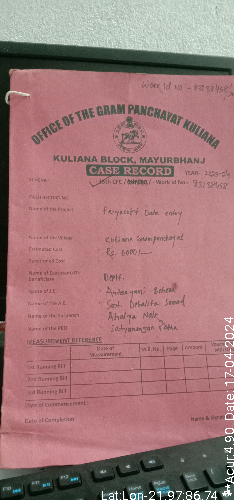 Work Id No - 83238458
OFFICE OF THE GRAM PANCHAYAT KULIANA
KULIANA BLOCK, MAYURBHANJ
CASE RECORD
YEAR- 2023-24
SCHEME- 15th CFC / Work Id No- 83238458
Name of the Project : Priyasoft Data entry
Name of the Village : Kuliana Grampanchayat
Estimated Cost : Rs. 6000/-
Sanctioned Cost :
Name of Executant/Beneficiary : Deptt.
Name of J.E. : Behera
Name of the A.E. : Smt.
Name of the Sarapanch : Naik
Name of the PEO : Satyanarayan Patra
MEASUREMENT REFERENCE
Date of Measurement M.B. No. Page Amount
1st Running Bill
2nd Running Bill
3rd Running Bill
Date of Commencement :
Date of Completion
Name & Signature
Acur:4.90 Date:17-04-2024
Lat:Lon-21.97:86.74